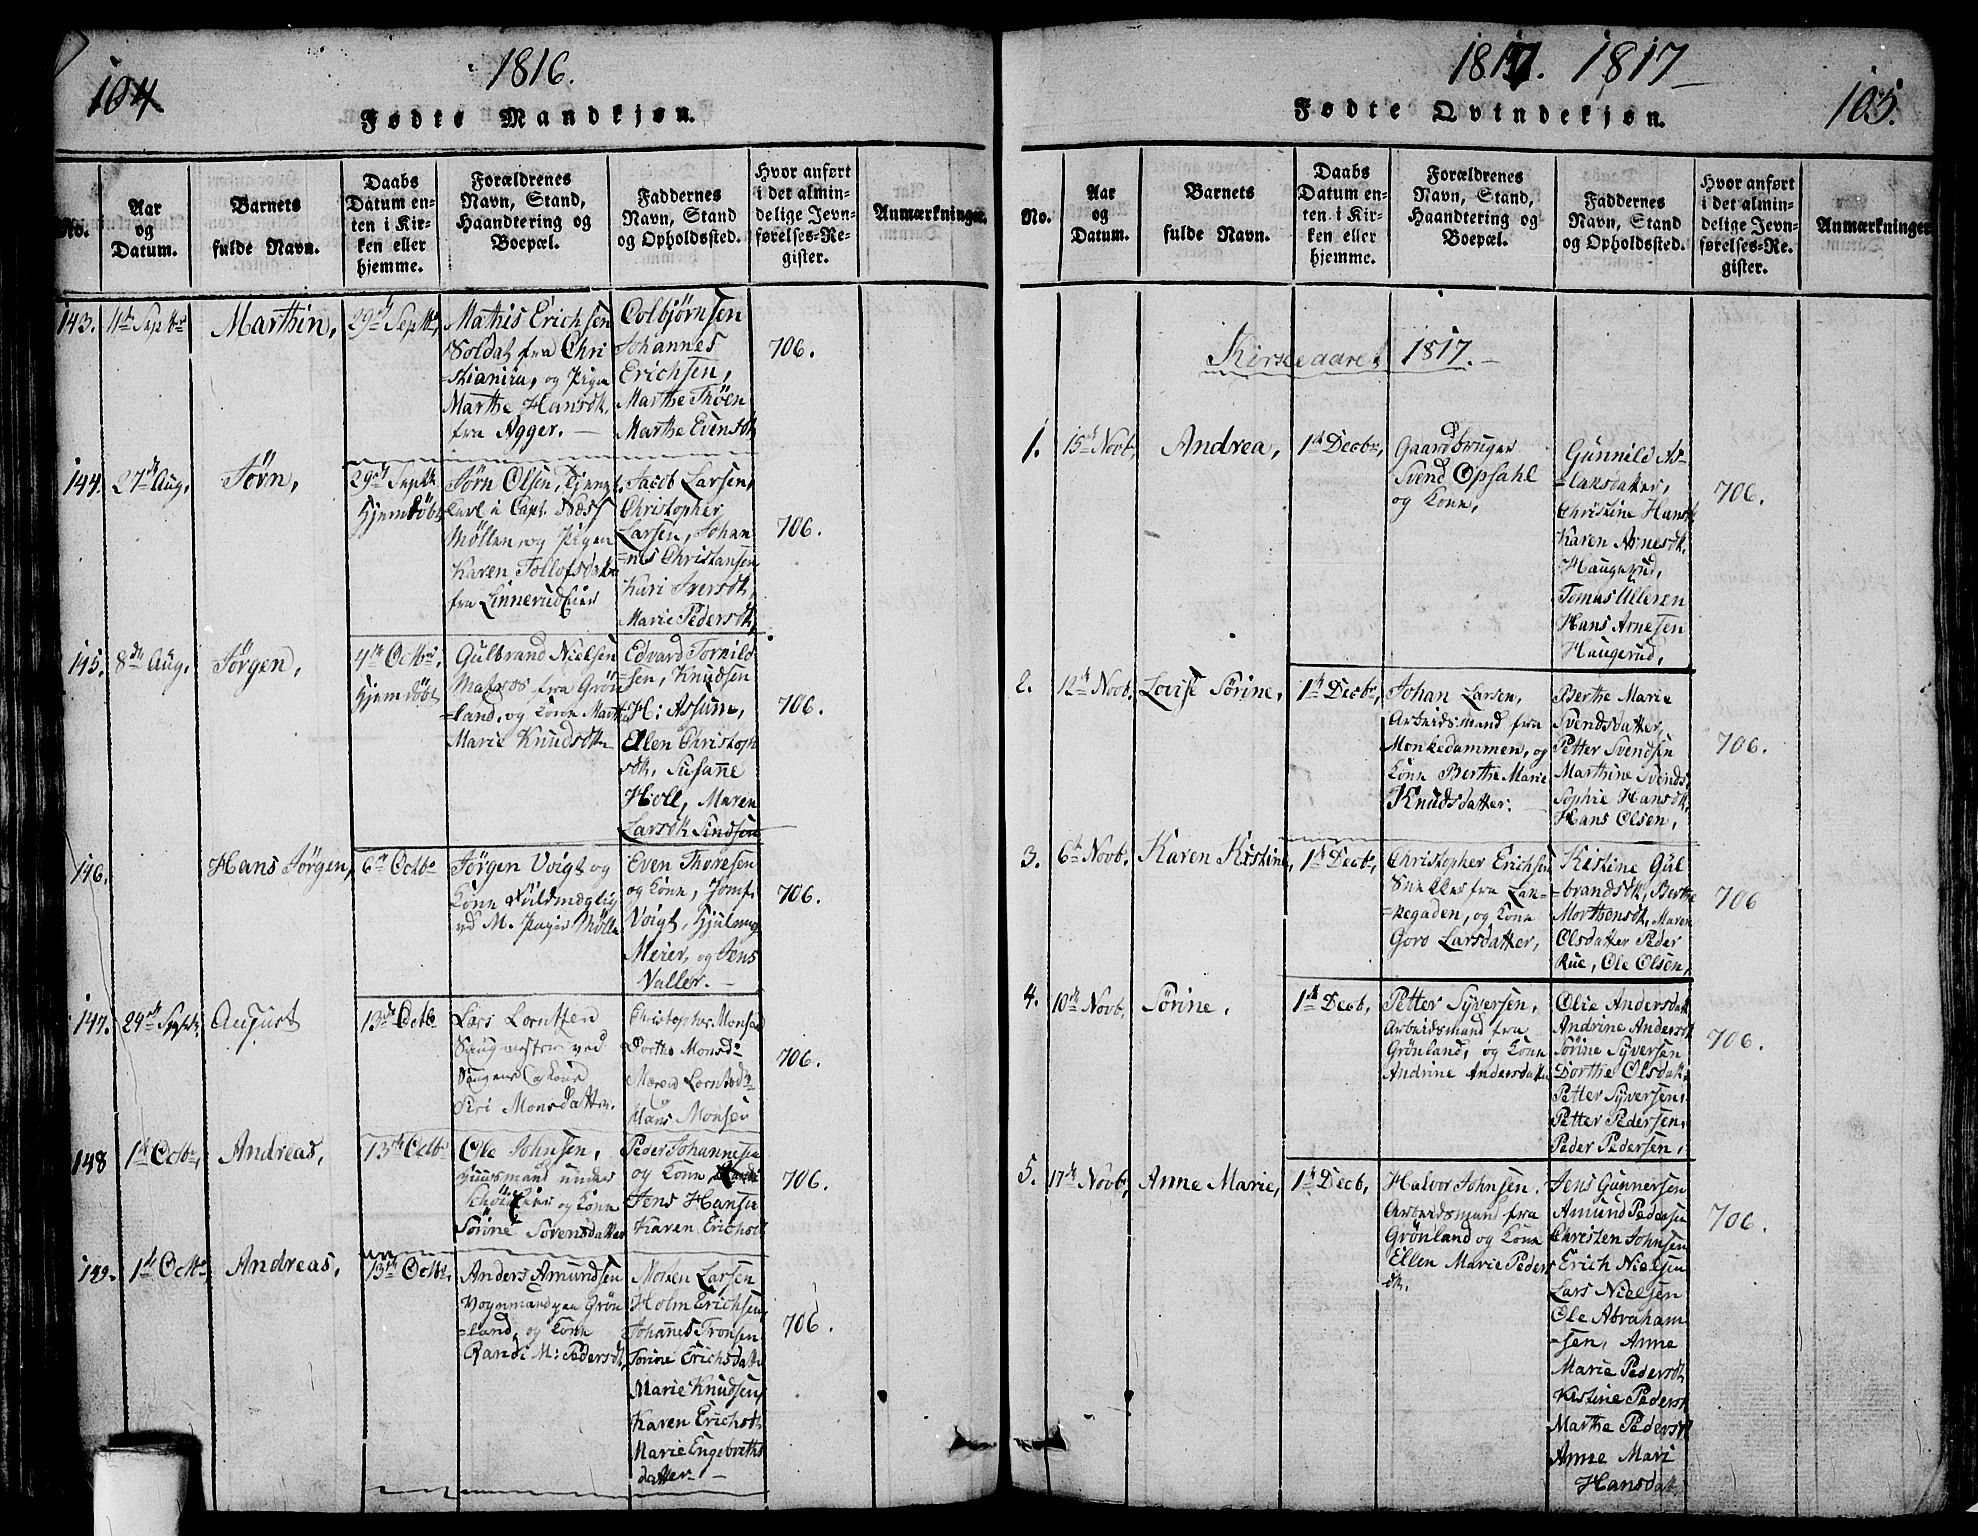 104
1816.
Fødte Mandkjøn.
No.
Aar og Datum.
Barnets fulde Navn.
Daabs Datum enten i Kirken eller hjemme.
Forældrenes Navn, Stand, Haandtering og Boepæl.
Faddernes Navn, Stand og Opholdssted.
Hvor anført i det almindelige Jevnførelses-Register.
Anmærkninger.
143. 11te Septbr Marthin, 29de Septbr,
Mathis Erichsen
Soldat fra Chri
=stiania, og Pigen
Marthe Hansdtr.
fra Agger. —
Colbjørnsen
Johannes
Erichsen,
Marthe Thöen
Marthe Evensdtr
706.
144. 27de Aug, Jörn, 29de Septbr
Hjemdöbt
Jörn Olsen, tjenest
karl i Capt. Næss
Möllen og Pigen
Karen Tollofsdatr
fra Linnerudeier
Jacob Larsen,
Christopher
Larsen, Johan-
=nes Christiansen
Kari Iversdtr,
Marie Pedersdtr,
706.
145. 8de Aug, Jörgen, 4de Octbr,
Hjemdöbt
Gulbrand Nielsen
Matros fra Grön
=land, og Kone Marthe
Marie Knudsdtr
Edvard Tornild
=sen, Knudsen
H: Assum,
Ellen Christoph
sdtr, Susanne
Holl, Maren
Larsdtr Sindsen
706.
146. Hans Jörgen, 6te Octbr
Jörgen Voigt og
Kone Fuldmægtig
ved M. Pager Mölle
Even Thoresen
og Kone, Jomf.
Voigt, Hjelm
Meier, og Jens
Valler. —
706.
147. 24de Septbr August 13de Octb
Lars Lorntzen
Saugmester ved
Saugene og Kone
Siri Monsdatter.
Christopher Monsen
Dorthe Monsdr
Maren Lorntsdr
Hans Monsen
706.
148 1ste Octbr, Andreas, 13de Octbr
Ole Johnsen,
Huusmand under
og Kone
Sörine Sörensdatter
Peder Johannesen
og Kone, Randi
Jens Hansen
Karen Erichsdtr
706.
149. 1ste Octbr, Andreas, 13de Octbr,
Anders Amundsen
Vognmand paa Grön
=land, og Kone
Randi M: Pedersdtr,
Morten Larsen
Holm Erichsen,
Johannes Tronsen
Torine Erichsdatr
Marie Knudsen,
Karen Erichsdtr
Marie Engebreths
datter —
706.
1817. 1817
105.
Fødte Qvindekjøn.
No.
Aar og Datum.
Barnets fulde Navn.
Daabs Datum enten i Kirken eller hjemme.
Forældrenes Navn, Stand, Haandtering og Boepæl.
Faddernes Navn, Stand og Opholdssted.
Hvor anført i det almindelige Jevnførelses-Register.
Anmærkninger
Kirkeaaret 1817. —
1. 15de Novb, Andrea, 1ste Decbr,
Gaardbruger
Svend Opsahl
og Kone,
Gunnild As-
=laksdatter,
Christine Hansdtr
Karen Arnesdtr.
Haugerud,
Tomas Ulleren
Hans Arnesen
Haugerud,
706.
2. 12te Novb. Lovise Sörine, 1ste Decbr,
Johan Larsen,
Arbeidsmand fra
Monkedammen, og
Kone Berthe Marie
Knudsdatter. —
Berthe Marie
Svendsdatter,
Petter Svendsen
Marthine Svends.
Sophie Hansdtr,
Hans Olsen,
706.
3. 6te Novb. Karen Kistine, 1ste Decbr,
Christopher Erichsen
Snekker fra Lak-
=kegaden, og Kone
Goro Larsdatter,
Kistine Gul
=brandsdtr, Berthe
Morthensdtr, Maren
Olsdatter Peder
Rue, Ole Olsen,
706
4. 10de Novb, Sörine, 1ste Decb,
Petter Syversen,
Arbeidsmand fra
Grönland, og Kone
Andrine Andersdatr
Olie Andersdatr
Andrine Andersdtr
Sörine Syversen
Dorthe Olsdatr,
Petter Syversen,
Petter Pedersen,
Peder Pedersen,
706.
5. 17de Novb, Anne Marie, 1ste Decb,
Halvor Johnsen.
Arbeidsmand fra
Grönland og Kone
Ellen Marie Peders
dtr.
Jens Gunnersen
Amund Pedersen
Christen Johnsen
Erich Nielsen
Lars Nielsen
Ole Abraham
=sen, Anne
Marie Pedersdtr
Kistine Pedersdtr
Marthe Pedersdtr
Anne Mari
Hansdatr.
706.